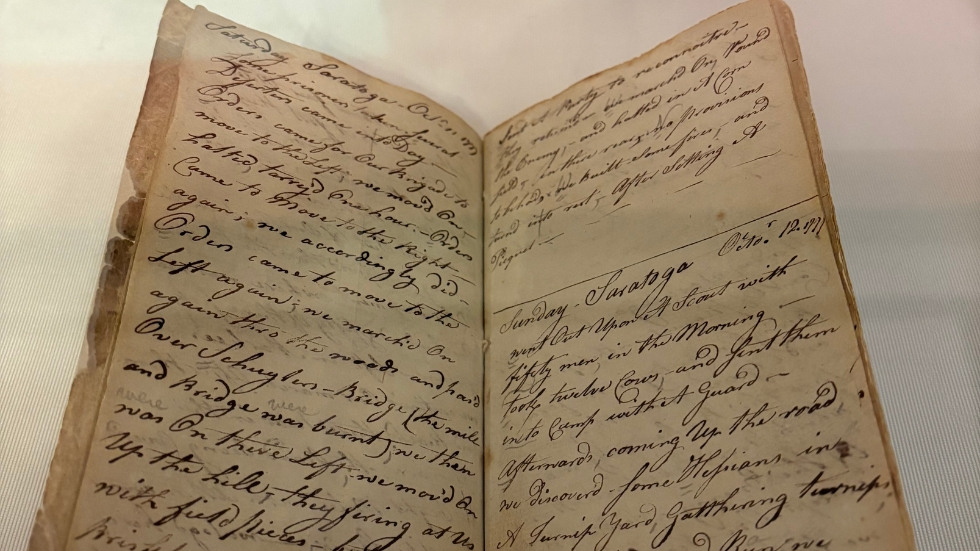 Saturday Saratoga - Oct. 11. 1777
some prisoners, & several
Deserters came in to Day -
Orders came for Our brigade to
move to the left; we moved On -
halted, tarried One hour - Orders
Came to Move to the Right -
again; we accordingly did -
Orders came to move to the
left again; we marched On
again thro' the woods and pass'd
Over Schuylers - Bridge (the mill
and Bridge was burnt), we then
were were
was On there Left, we mov'd On
up the hill, they firing at us
with field pieces -
Sent A Party to reconnoitre -
they returned We marchd On, Found
the Enemy, and halted in A Corn
field, in there receiving Provisions
to be had. We built some fires, and
turnd into rest, After Setting A
Piquet -
Sunday - Saratoga Octor. 12. 1777
went Out Upon A Scout with
fifety men, in the Morning
took twelve Cows - and sent them
into Camp with A Guard -
Afterwards, coming Up the road,
we discoverd some Hessians in
A Turnip Yard, Gatthering turneps,
we